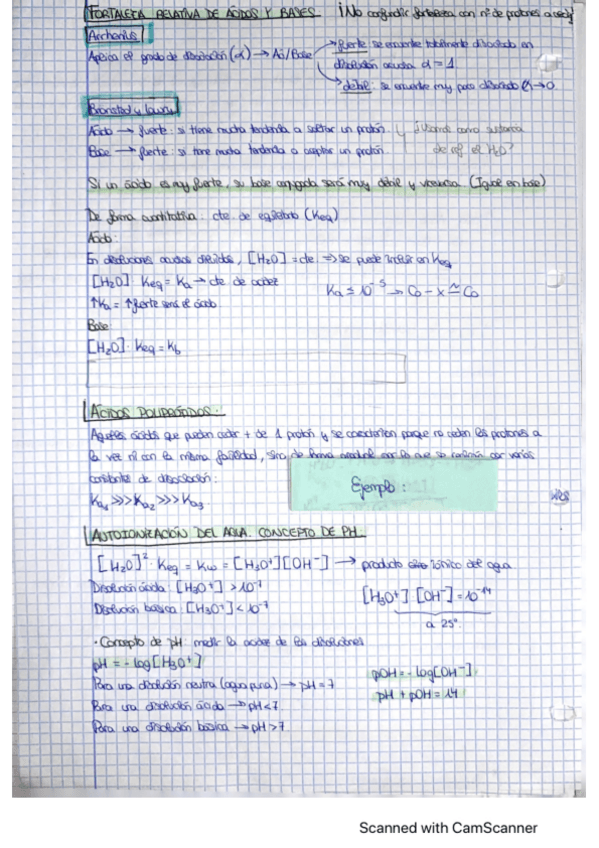 FORTALEZA RELATIVA DE ÁCIDOS Y BASES. ¡No confundir fortaleza con nº de protones a ceder!
Arrhenius
Aplica el grado de disociación (α) → Ác/Base → fuerte: se encuentre totalmente disociado en
disolución acuosa α = 1
→ débil: se encuentre muy poco disociado α→0.
Bronsted y Lowry
Ácido → fuerte: si tiene mucha tendencia a soltar un protón.
Base → fuerte: si tiene mucha tendencia a aceptar un protón.
¿Usando como sustancia
de ref el H2O?
Si un ácido es muy fuerte, su base conjugada será muy débil y viceversa (Igual en base)
De forma cuantitativa: cte de equilibrio (Keq)
Ácido:
En disoluciones acuosas diluidas, [H2O] = cte ⇒ se puede incluir en Keq
[H2O] · Keq = Ka → cte de acidez
Ka ≤ 10^-5 → Co - x ≃ Co
↑Ka = ↑fuerte será el ácido
Base
[H2O] · Keq = Kb
ÁCIDOS POLIPRÓTICOS.
Aquellos ácidos que pueden ceder + de 1 protón y se caracterizan porque no ceden los protones a
la vez ni con la misma facilidad, sino de forma
constantes de disociación:
Ejemplo:
Ka1 >>> Ka2 >>> Ka3
AUTOIONIZACIÓN DEL AGUA. CONCEPTO DE PH.
[H2O]² · Keq = Kw = [H3O+][OH-] → producto iónico del agua
Disolución ácida: [H3O+] > 10^-7
[H3O+] [OH-] = 10^-14
Disolución básica: [H3O+] < 10^-7
a 25º.
· Concepto de pH: medir la acidez de las disoluciones
pH = - log[H3O+]
pOH = - log[OH-]
Para una disolución neutra (agua pura) → pH = 7
pH + pOH = 14
Para una disolución ácida → pH < 7
Para una disolución básica → pH > 7
Scanned with CamScanner